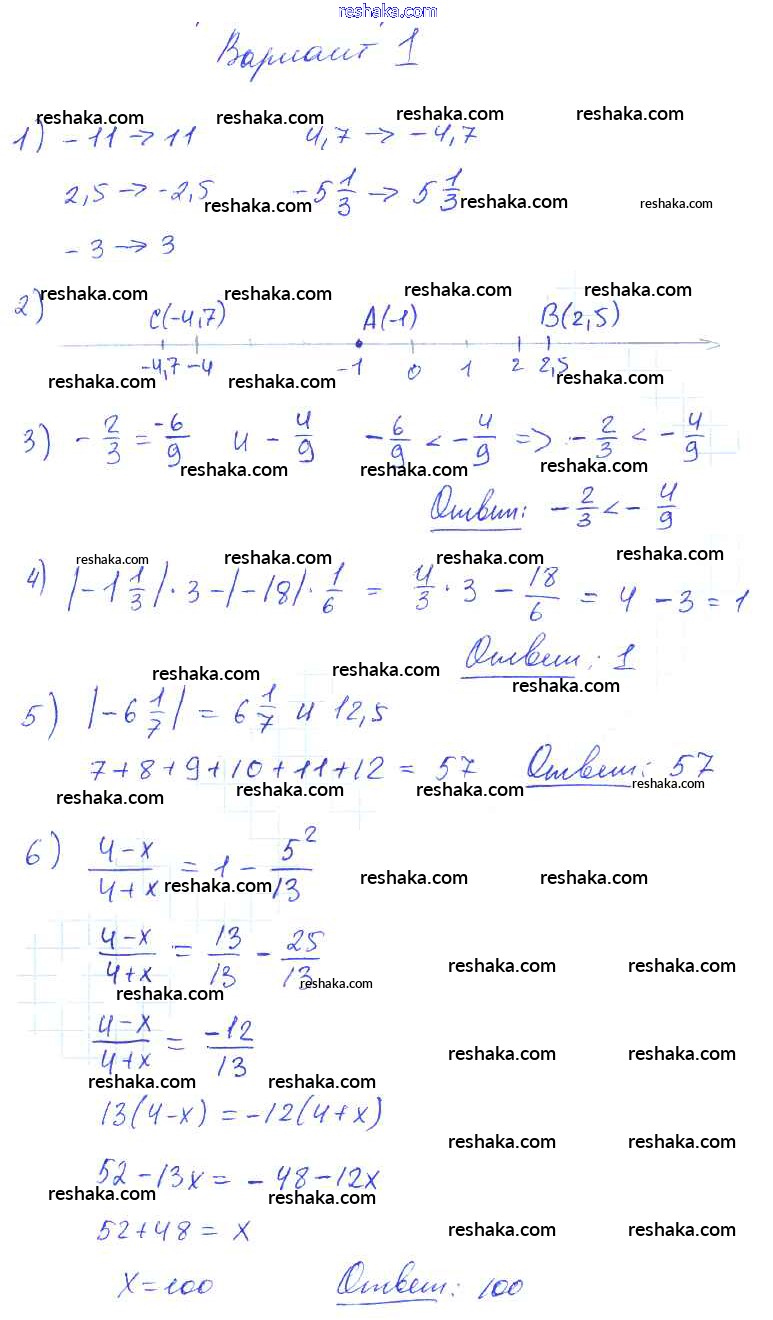 reshaka.com
Вариант 1
reshaka.com reshaka.com reshaka.com reshaka.com
1) -11 → 11 4,7 → -4,7
2,5 → -2,5 -5 1/3 → 5 1/3
reshaka.com reshaka.com reshaka.com
-3 → 3
reshaka.com reshaka.com reshaka.com reshaka.com
2) C(-4,7) A(-1) B(2,5)
-4,7 -4 -1 0 1 2 2,5
reshaka.com reshaka.com reshaka.com reshaka.com
3) -2/3 = -6/9 и -4/9 -6/9 < -4/9 => -2/3 < -4/9
reshaka.com reshaka.com reshaka.com
Ответ: -2/3 < -4/9
reshaka.com reshaka.com reshaka.com reshaka.com
4) |-1 1/3| · 3 - |-18| · 1/6 = 4/3 · 3 - 18/6 = 4 - 3 = 1
Ответ: 1
reshaka.com reshaka.com reshaka.com
5) |-6 1/7| = 6 1/7 и 12,5
7+8+9+10+11+12 = 57 Ответ: 57
reshaka.com reshaka.com reshaka.com reshaka.com
6) (4-x)/(4+x) = 1 - 5²/13
reshaka.com reshaka.com reshaka.com
(4-x)/(4+x) = 13/13 - 25/13
reshaka.com reshaka.com
reshaka.com reshaka.com
(4-x)/(4+x) = -12/13
reshaka.com reshaka.com
reshaka.com reshaka.com
13(4-x) = -12(4+x)
reshaka.com reshaka.com
52-13x = -48-12x
reshaka.com reshaka.com reshaka.com reshaka.com
52+48 = x
reshaka.com reshaka.com
x=100 Ответ: 100